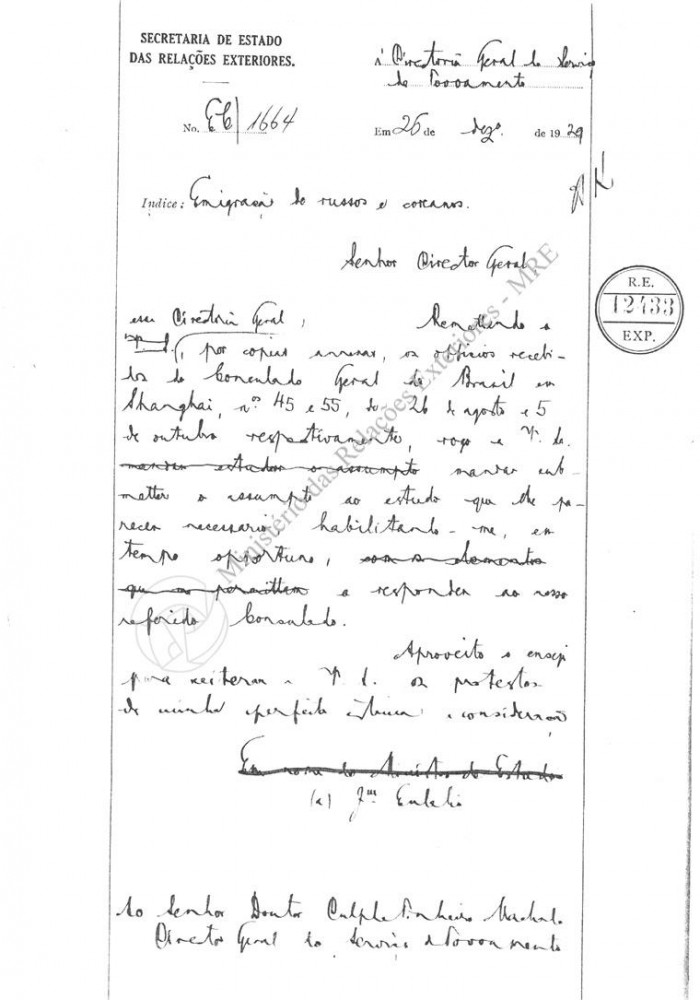 SECRETARIA DE ESTADO
DAS RELAÇÕES EXTERIORES.
á Directoria Geral do Serviço
de Povoamento
No. EC/1664
Em 26 de dezo. de 1929
Indice: Emigração de russos e coreanos.
Senhor Director Geral
R.E.
12433
EXP.
essa Directoria Geral, Remettendo a
por copias annexas, os officios recebi-
dos do Consulado Geral do Brasil em
Shanghai, nos 45 e 55, de 26 de agosto e 5
de outubro respectivamente, rogo a V. S.
mandar estudar o assumpto mandar sub-
metter o assumpto ao estudo que lhe pa-
recer necessario habilitando-me, em
tempo opportuno, com os elementos
que me permittam a responder ao nosso
referido Consulado.
Aproveito o ensejo
para reiterar a V. S. os protestos
de minha perfeita estima e consideração
Em nome do Ministro de Estado
(a)
Ao Senhor Doutor Dulphe Pinheiro Machado
Director Geral do Serviço de Povoamento
Ministério das Relações Exteriores - MRE